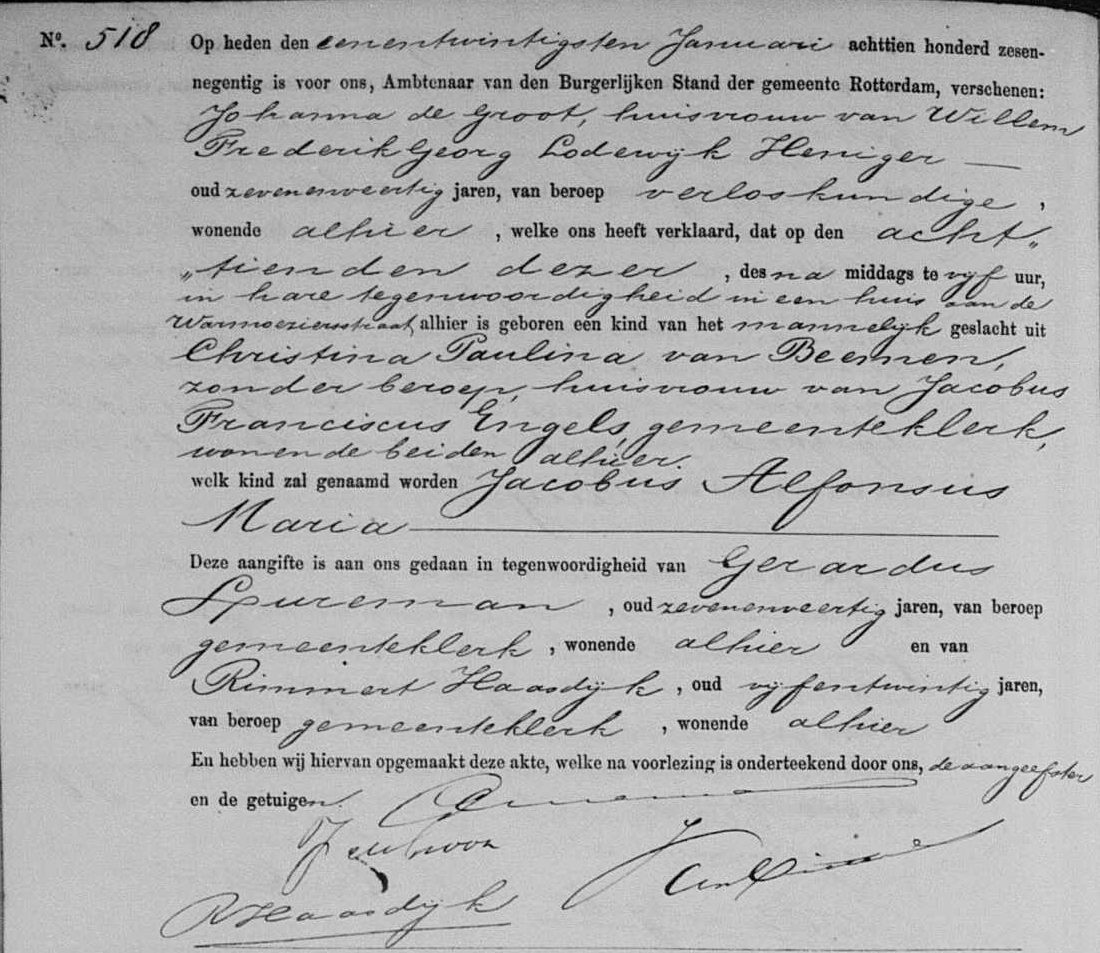 No. 518 Op heden den eenentwintigsten Januari achttien honderd zesen-
negentig is voor ons, Ambtenaar van den Burgerlijken Stand der gemeente Rotterdam, verschenen:
Johanna de Groot, huisvrouw van Willem
Frederik Georg Lodewijk Heniger —
oud zevenenveertig jaren, van beroep verloskundige,
wonende alhier, welke ons heeft verklaard, dat op den acht„
„tienden dezer, des na middags te vijf uur,
in hare tegenwoordigheid in een huis aan de
Warmoezierstraat, alhier is geboren een kind van het mannelijk geslacht uit
Christina Paulina van Beemen,
zonder beroep, huisvrouw van Jacobus
Franciscus Engels, gemeenteklerk,
wonende beiden alhier.
welk kind zal genaamd worden Jacobus Alfonsus
Maria —
Deze aangifte is aan ons gedaan in tegenwoordigheid van Gerardus
Spureman, oud zevenenveertig jaren, van beroep
gemeenteklerk, wonende alhier en van
Rimmert Haasdijk, oud vijfentwintig jaren,
van beroep gemeenteklerk, wonende alhier
En hebben wij hiervan opgemaakt deze akte, welke na voorlezing is onderteekend door ons, de aangeefster
en de getuigen.
R Haasdijk